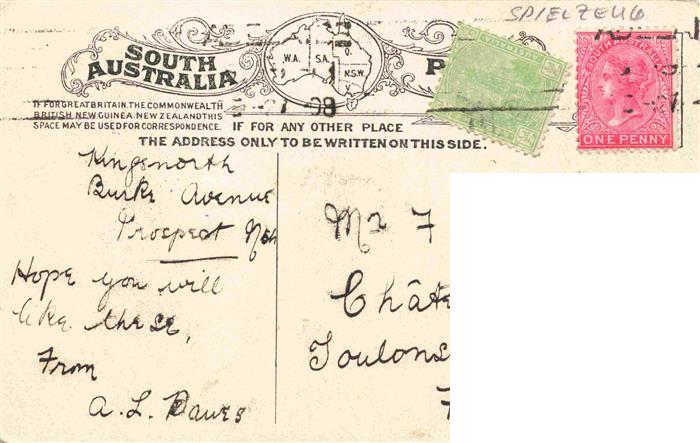 SPIELZEUG
SOUTH
AUSTRALIA
W.A.
S.A.
Q.
N.S.W.
V.
P
SOUTH AUSTRALIA
ONE PENNY
08
IF FOR GREAT BRITAIN, THE COMMONWEALTH
BRITISH NEW GUINEA, NEW ZEALAND THIS
SPACE MAY BE USED FOR CORRESPONDENCE.
IF FOR ANY OTHER PLACE
THE ADDRESS ONLY TO BE WRITTEN ON THIS SIDE.
Kingsnorth
Burke Avenue
Prospect
Hope you will
like these,
From
A. L. Dawes
Mr F
Châte
Toulons
F